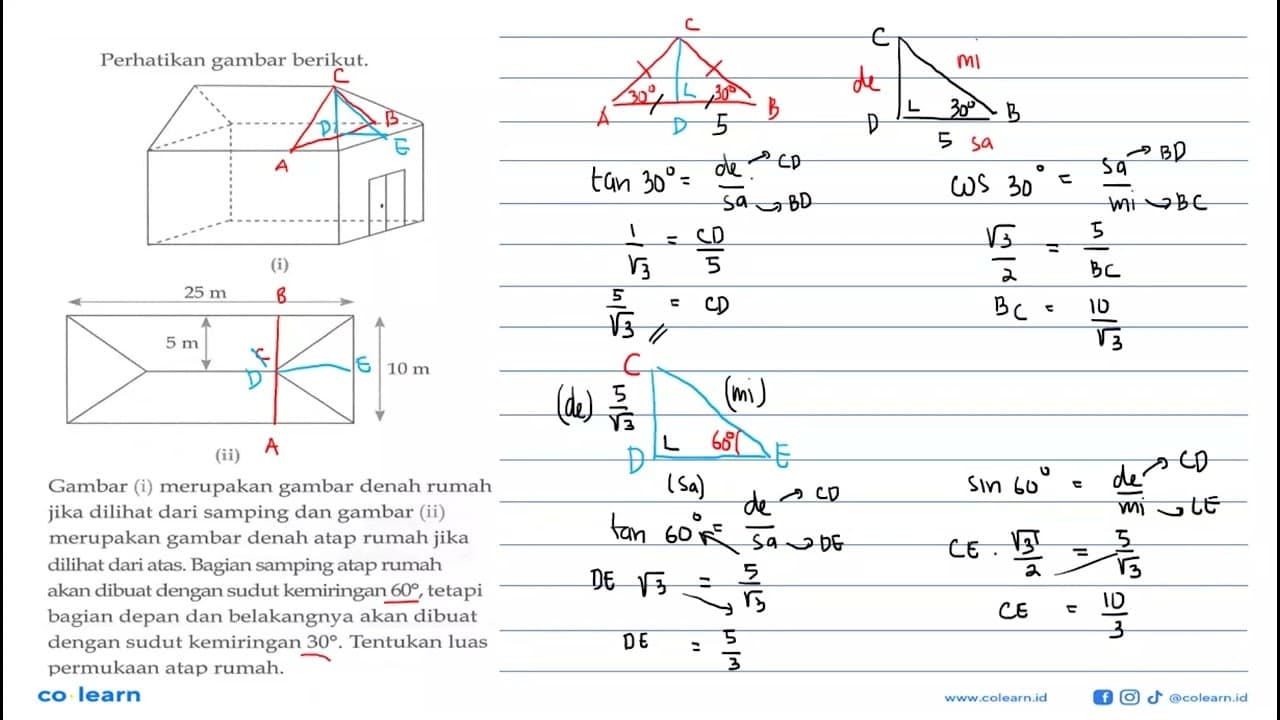 Perhatikan gambar berikut.
C
D
B
E
A
(i)
25 m
B
5 m
C
D
E
10 m
A
(ii)
Gambar (i) merupakan gambar denah rumah
jika dilihat dari samping dan gambar (ii)
merupakan gambar denah atap rumah jika
dilihat dari atas. Bagian samping atap rumah
akan dibuat dengan sudut kemiringan 60°, tetapi
bagian depan dan belakangnya akan dibuat
dengan sudut kemiringan 30°. Tentukan luas
permukaan atap rumah.
C
30° 30°
A D 5 B
C
de mi
30°
D B
5 sa
tan 30° = de/sa → CD → BD
1/√3 = CD/5
5/√3 = CD
cos 30° = sa/mi → BD → BC
√3/2 = 5/BC
BC = 10/√3
C
(de) 5/√3 (mi)
60°
D E
(sa)
tan 60° = de/sa → CD → DE
DE √3 = 5/√3
DE = 5/3
sin 60° = de/mi → CD → CE
CE . √3/2 = 5/√3
CE = 10/3
co·learn
www.colearn.id
@colearn.id